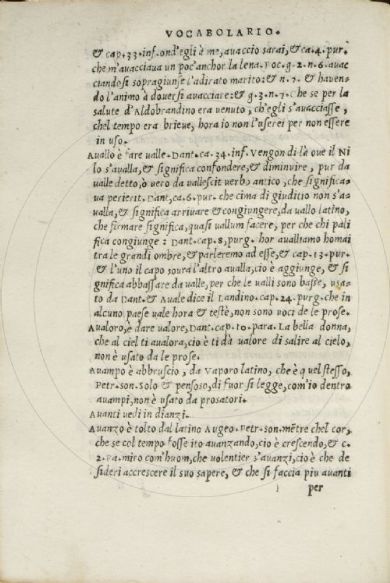 VOCABOLARIO.
& cap. 33. inf. ond'egli è m', avaccio sarai, & ca. 4. pur.
che m'avacciava un poc'anchor la lena. Boc. g. 2. n. 6. avac
ciandosi sopragiunse l'adirato marito: & n. 7. & haven-
do l'animo à doversi avacciare: & g. 3. n. 7. che se per la
salute d'Aldobrandino era venuto, ch'egli s'avacciasse,
chel tempo era brieve, hora io non l'userei per non essere
in uso.
Avallo è fare valle. Dant. ca. 34. inf. Vengon di là ove il Ni
lo s'avalla, & significa confondere, & diminuire, pur da
valle detto, ò vero da vallescit verbo antico, che significa-
va perierit. Dant. ca. 6. pur. che cima di giuditio non s'a
valla, & significa arrivare & congiungere, da vallo latino,
che firmare significa, quasi vallum facere, per che chi pali
fica congiunge: Dant. cap. 8. purg. hor avalliamo homai
tra le grandi ombre, & parleremo ad esse, & cap. 13. pur.
& l'uno il capo sovra l'altro avalla, cio è aggiunge, & si
gnifica abbassare da valle, per che le valli sono basse, usa-
to da Dant. & Avale dice il Landino. cap. 24. purg. che in
alcuno paese vale hora & testè, non sono voci de le prose.
Avaloro, è dare valore, Dant. cap. 10. para. La bella donna,
che al ciel ti avalora, cio è ti dà valore di salire al cielo,
non è usato da le prose.
Avampo è abbruscio, da Vaporo latino, che è quel stesso,
Petr. son. Solo & pensoso, di fuor si legge, com'io dentro
avampi, non è usato da prosatori.
Avanti vedi in dianzi.
Avanzo è tolto dal latino Augeo. Petr. son. mẽtre chel cor,
che se col tempo fosse ito avanzando, cio è crescendo, & c.
2. Pa. miro com'huom, che volentier s'avanzi, cio è che de
sideri accrescere il suo sapere, & che si faccia piu avanti
per